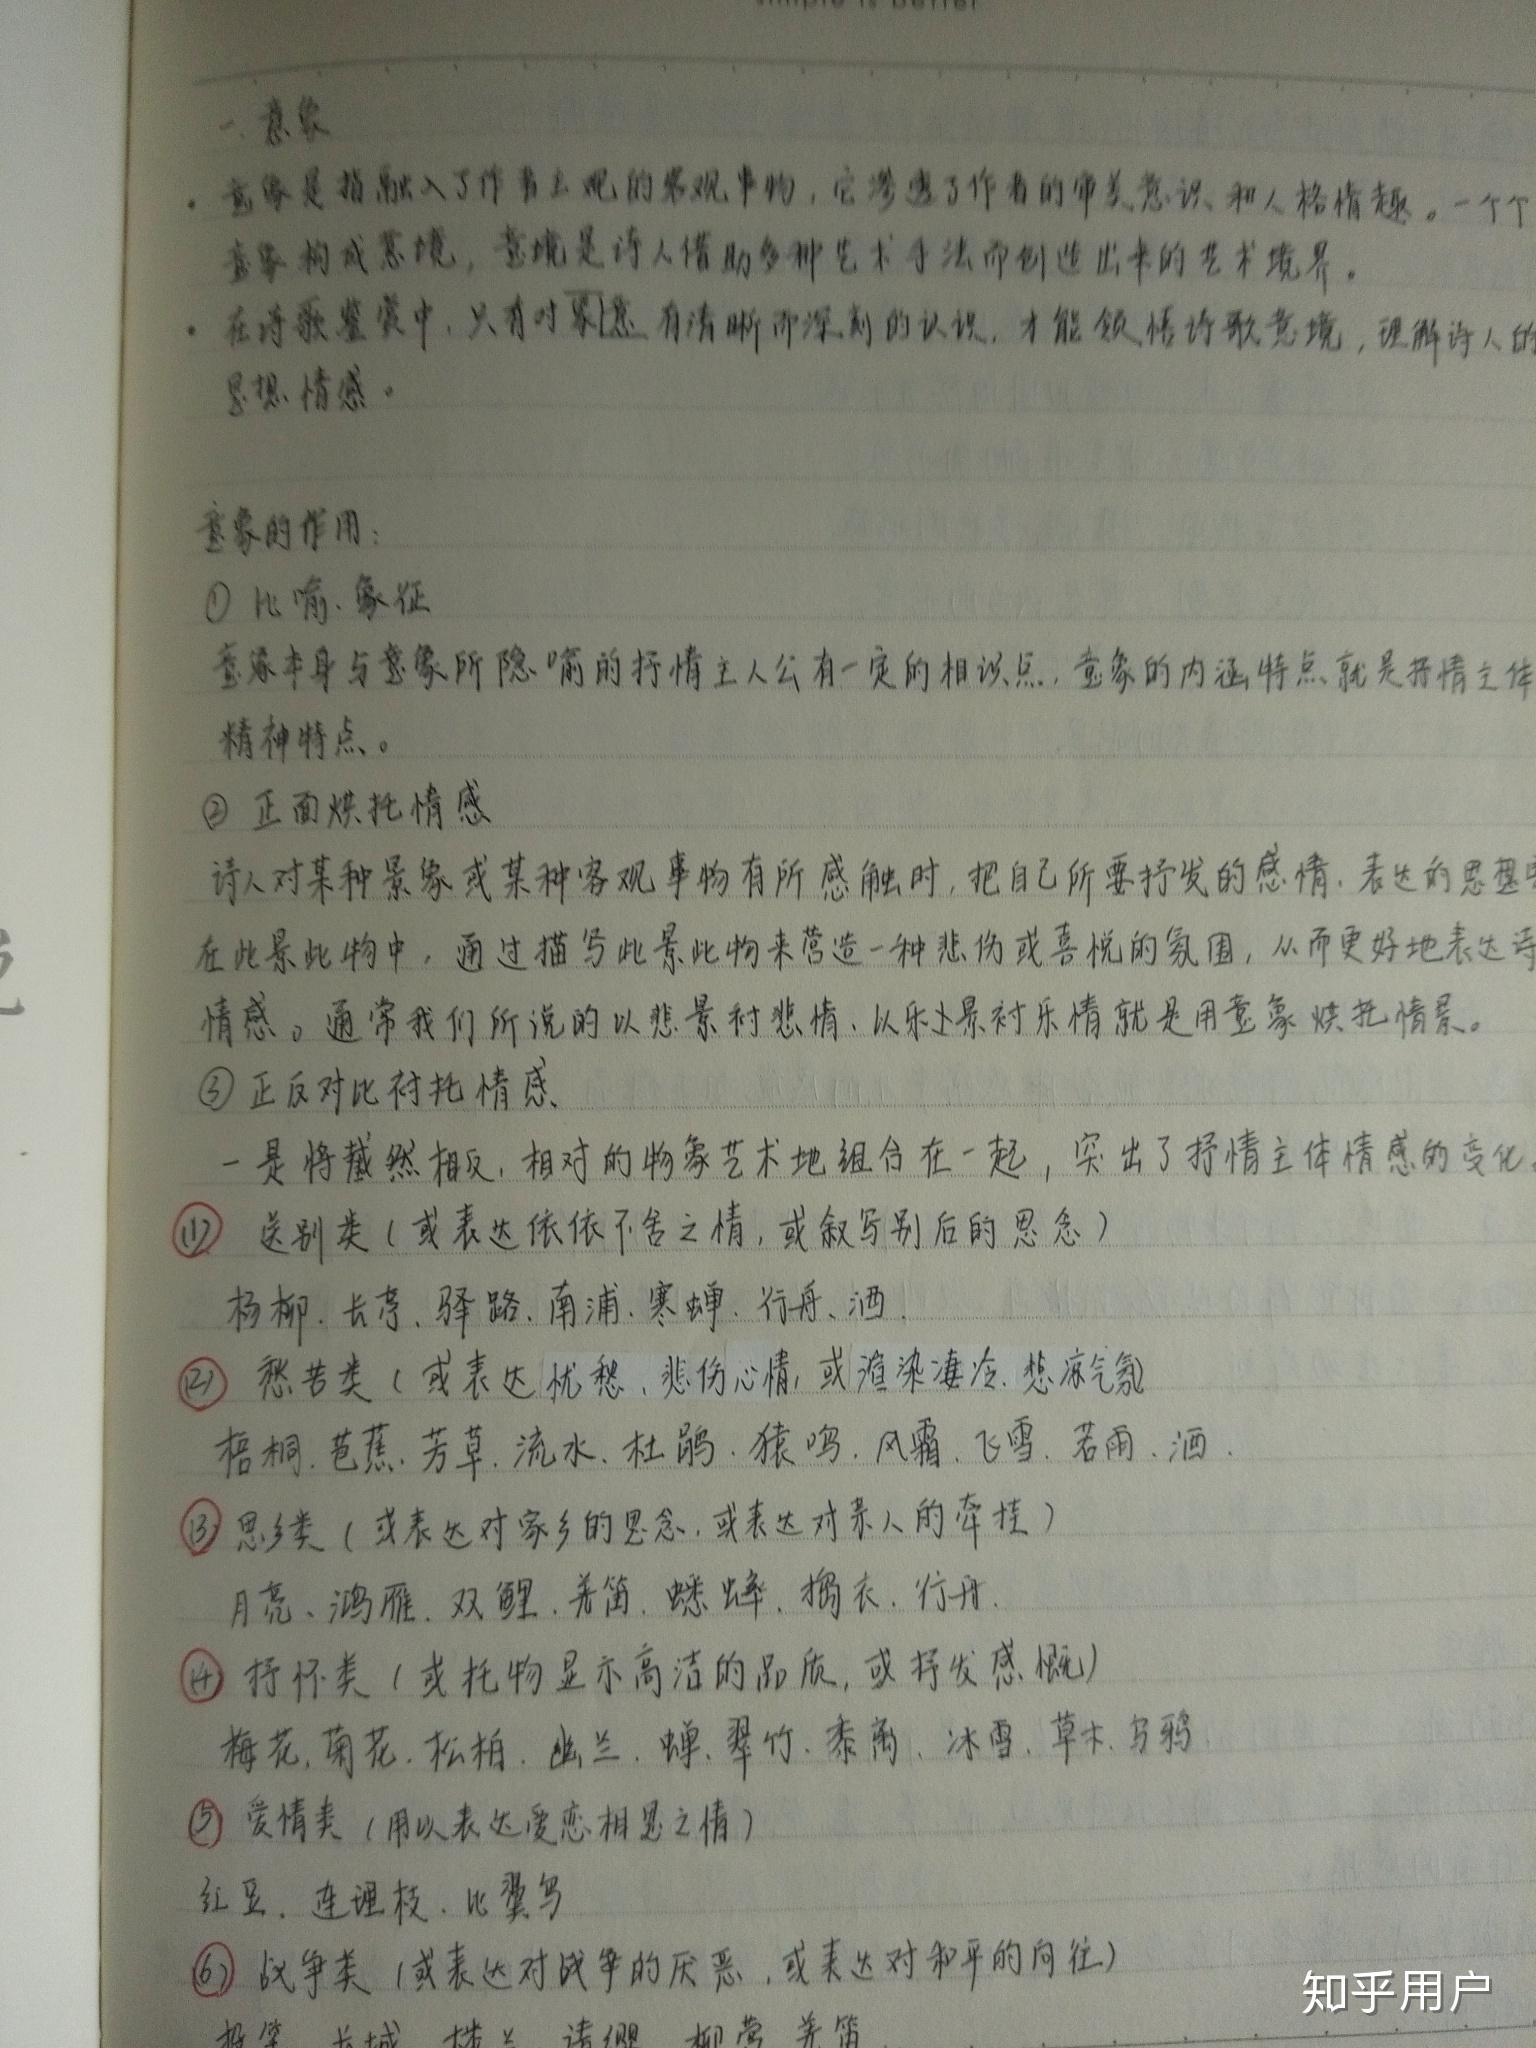 simple is better
一、意象
· 意象是指融入了作者主观的客观事物，它渗透了作者的审美意识和人格情趣。一个个
意象构成意境，意境是诗人借助多种艺术手法而创造出来的艺术境界。
· 在诗歌鉴赏中，只有对象意有清晰而深刻的认识，才能领悟诗歌意境，理解诗人的
思想情感。
意象的作用：
① 比喻、象征
意象本身与意象所隐喻的抒情主人公有一定的相识点，意象的内涵特点就是抒情主体
精神特点。
② 正面烘托情感
诗人对某种景象或某种客观事物有所感触时，把自己所要抒发的感情、表达的思想
在此景此物中，通过描写此景此物来营造一种悲伤或喜悦的氛围，从而更好地表达诗
情感。通常我们所说的以悲景衬悲情、以乐景衬乐情就是用意象烘托情景。
③ 正反对比衬托情感
一是将截然相反、相对的物象艺术地组合在一起，突出了抒情主体情感的变化。
(1) 送别类（或表达依依不舍之情，或叙写别后的思念）
杨柳、长亭、驿路、南浦、寒蝉、行舟、洒.
(2) 愁苦类（或表达忧愁、悲伤心情，或渲染凄冷、悲凉气氛
梧桐、芭蕉、芳草、流水、杜鹃、猿鸣、风霜、飞雪、若雨、洒.
(3) 思乡类（或表达对家乡的思念，或表达对亲人的牵挂）
月亮、鸿雁、双鲤、羌笛、蟋蟀、捣衣、行舟.
(4) 抒怀类（或托物显示高洁的品质，或抒发感慨）
梅花、菊花、松柏、幽兰、蝉、翠竹、黍离、冰雪、草木、乌鸦
(5) 爱情类（用以表达爱恋相思之情）
红豆、连理枝、比翼鸟
(6) 战争类（或表达对战争的厌恶，或表达对和平的向往）
投笔、长城、楼兰、请缨、柳营、羌笛
知乎用户